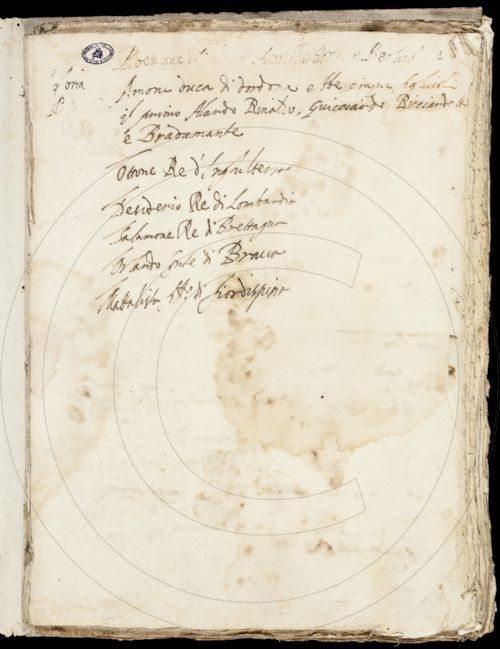 Amone duca di dordona ebbe cinque figliuoli
il primo Alardo Rinaldo, Guicciardo, Ricciardetto
e Bradamante
Ottone Re d'Inghilterra
Desiderio Re di Lombardia
Salamone Re di Brettagna
Orlando Conte di Brava
Mattalista di fiordispina